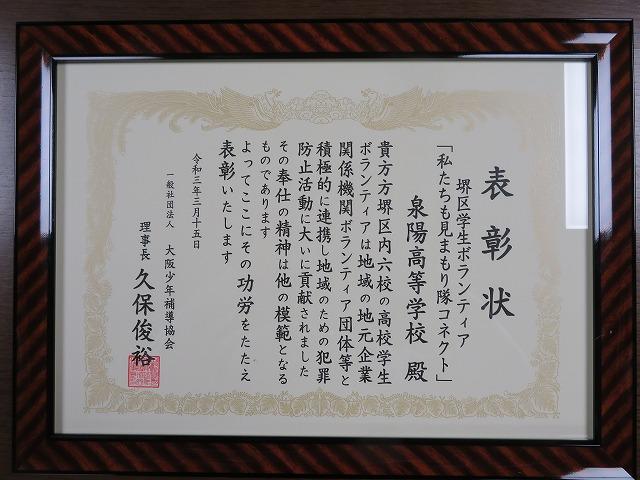 表彰状
堺区学生ボランティア
「私たちも見まもり隊コネクト」
泉陽高等学校 殿
貴方方堺区内六校の高校学生
ボランティアは地域の地元企業
関係機関ボランティア団体等と
積極的に連携し地域のための犯罪
防止活動に大いに貢献されました
その奉仕の精神は他の模範となる
ものであります
よってここにその功労をたたえ
表彰いたします
令和三年三月十五日
一般社団法人 大阪少年補導協会
理事長 久保俊裕